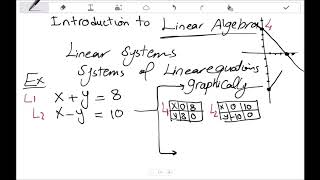 Introduction to Linear Algebra
Linear Systems
Systems of Linear equations
graphically
Ex
L1 x+y = 8
L2 x-y = 10
L1 x 0 8
y 8 0
L2 x 0 10
y -10 0